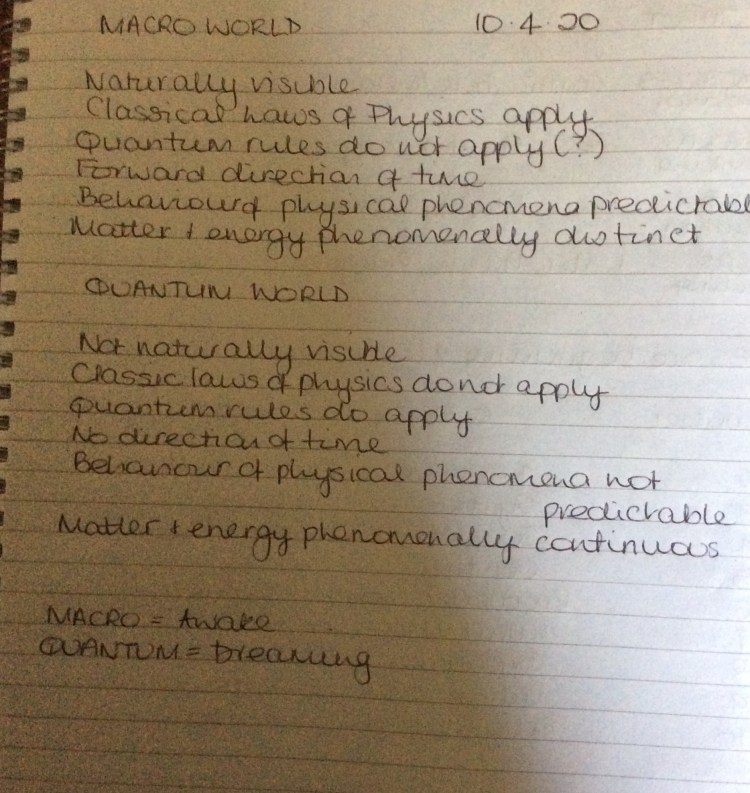 MACRO WORLD 10.4.20
Naturally visible
Classical Laws of Physics apply
Quantum rules do not apply (?)
Forward direction of time
Behaviour of physical phenomena predictabl
Matter + energy phenomenally distinct
QUANTUM WORLD
Not naturally visible
Classic laws of physics do not apply
Quantum rules do apply
No direction of time
Behaviour of physical phenomena not
predictable
Matter + energy phenomenally continuous
MACRO = Awake
QUANTUM = Dreaming